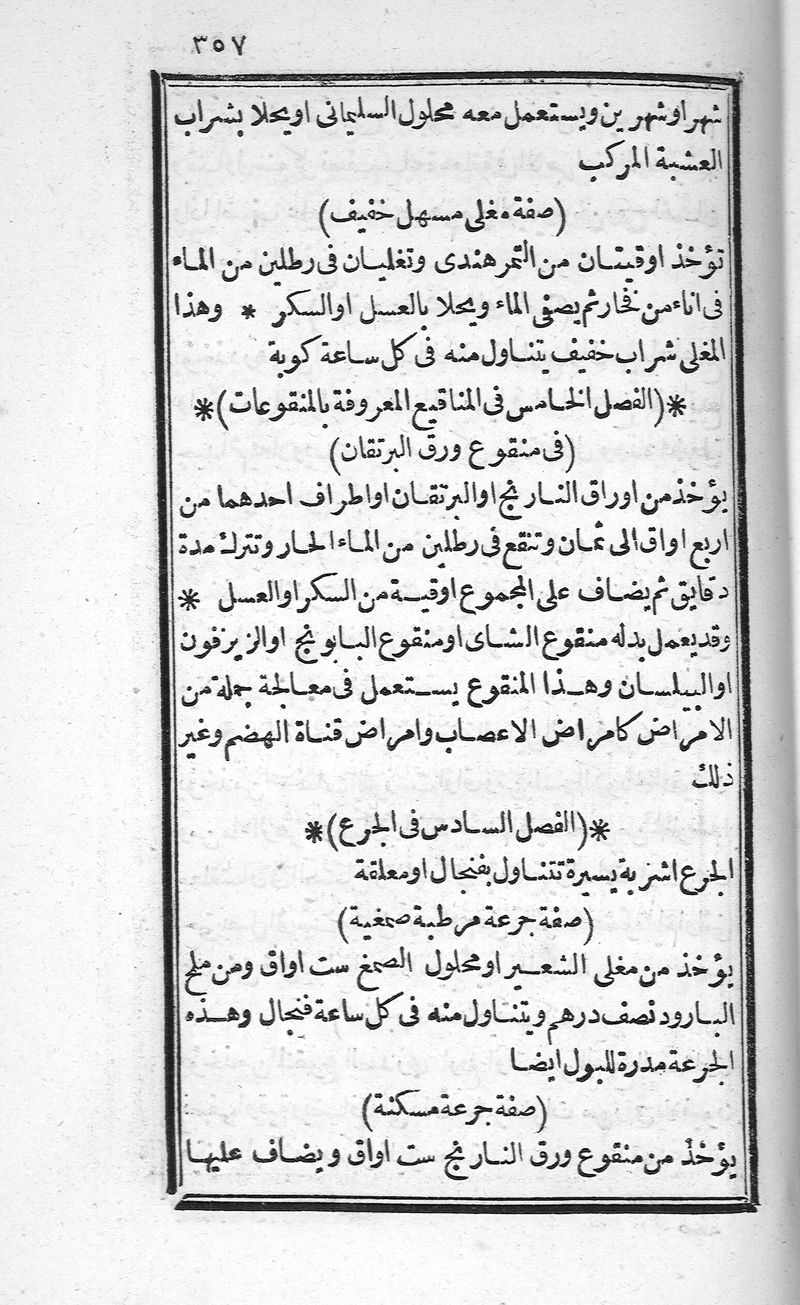 ٣٥٧
شهر او شهرين ويستعمل معه محلول السليمانى او يحلا بشراب
العشبة المركب
(صفة مغلى مسهل خفيف)
تؤخذ اوقيتان من التمر هندى وتغليان فى رطلين من الماء
فى اناء من فخار ثم يصفى الماء ويحلا بالعسل او السكر * وهذا
المغلى شراب خفيف يتناول منه فى كل ساعة كوبة
*(الفصل الخامس فى المناقيع المعروفة بالمنقوعات)*
(فى منقوع ورق البرتقان)
يؤخذ من اوراق النارنج او البرتقان او اطراف احدهما من
اربع اواق الى ثمان وتنقع فى رطلين من الماء الحار وتترك مدة
دقايق ثم يضاف على المجموع اوقية من السكر او العسل *
وقد يعمل بدله منقوع الشاى او منقوع البابونج او الزيزفون
او البيلسان وهذا المنقوع يستعمل فى معالجة جملة من
الامراض كامراض الاعصاب وامراض قناة الهضم وغير
ذلك
*(الفصل السادس فى الجرع)*
الجرع اشربة يسيرة تتناول بفنجال او معلقة
(صفة جرعة مرطبة صمغية)
يؤخذ من مغلى الشعير او محلول الصمغ ست اواق ومن ملح
البارود نصف درهم ويتناول منه فى كل ساعة فنجال وهذه
الجرعة مدرة للبول ايضا
(صفة جرعة مسكنة)
يؤخذ من منقوع ورق النارنج ست اواق ويضاف عليها